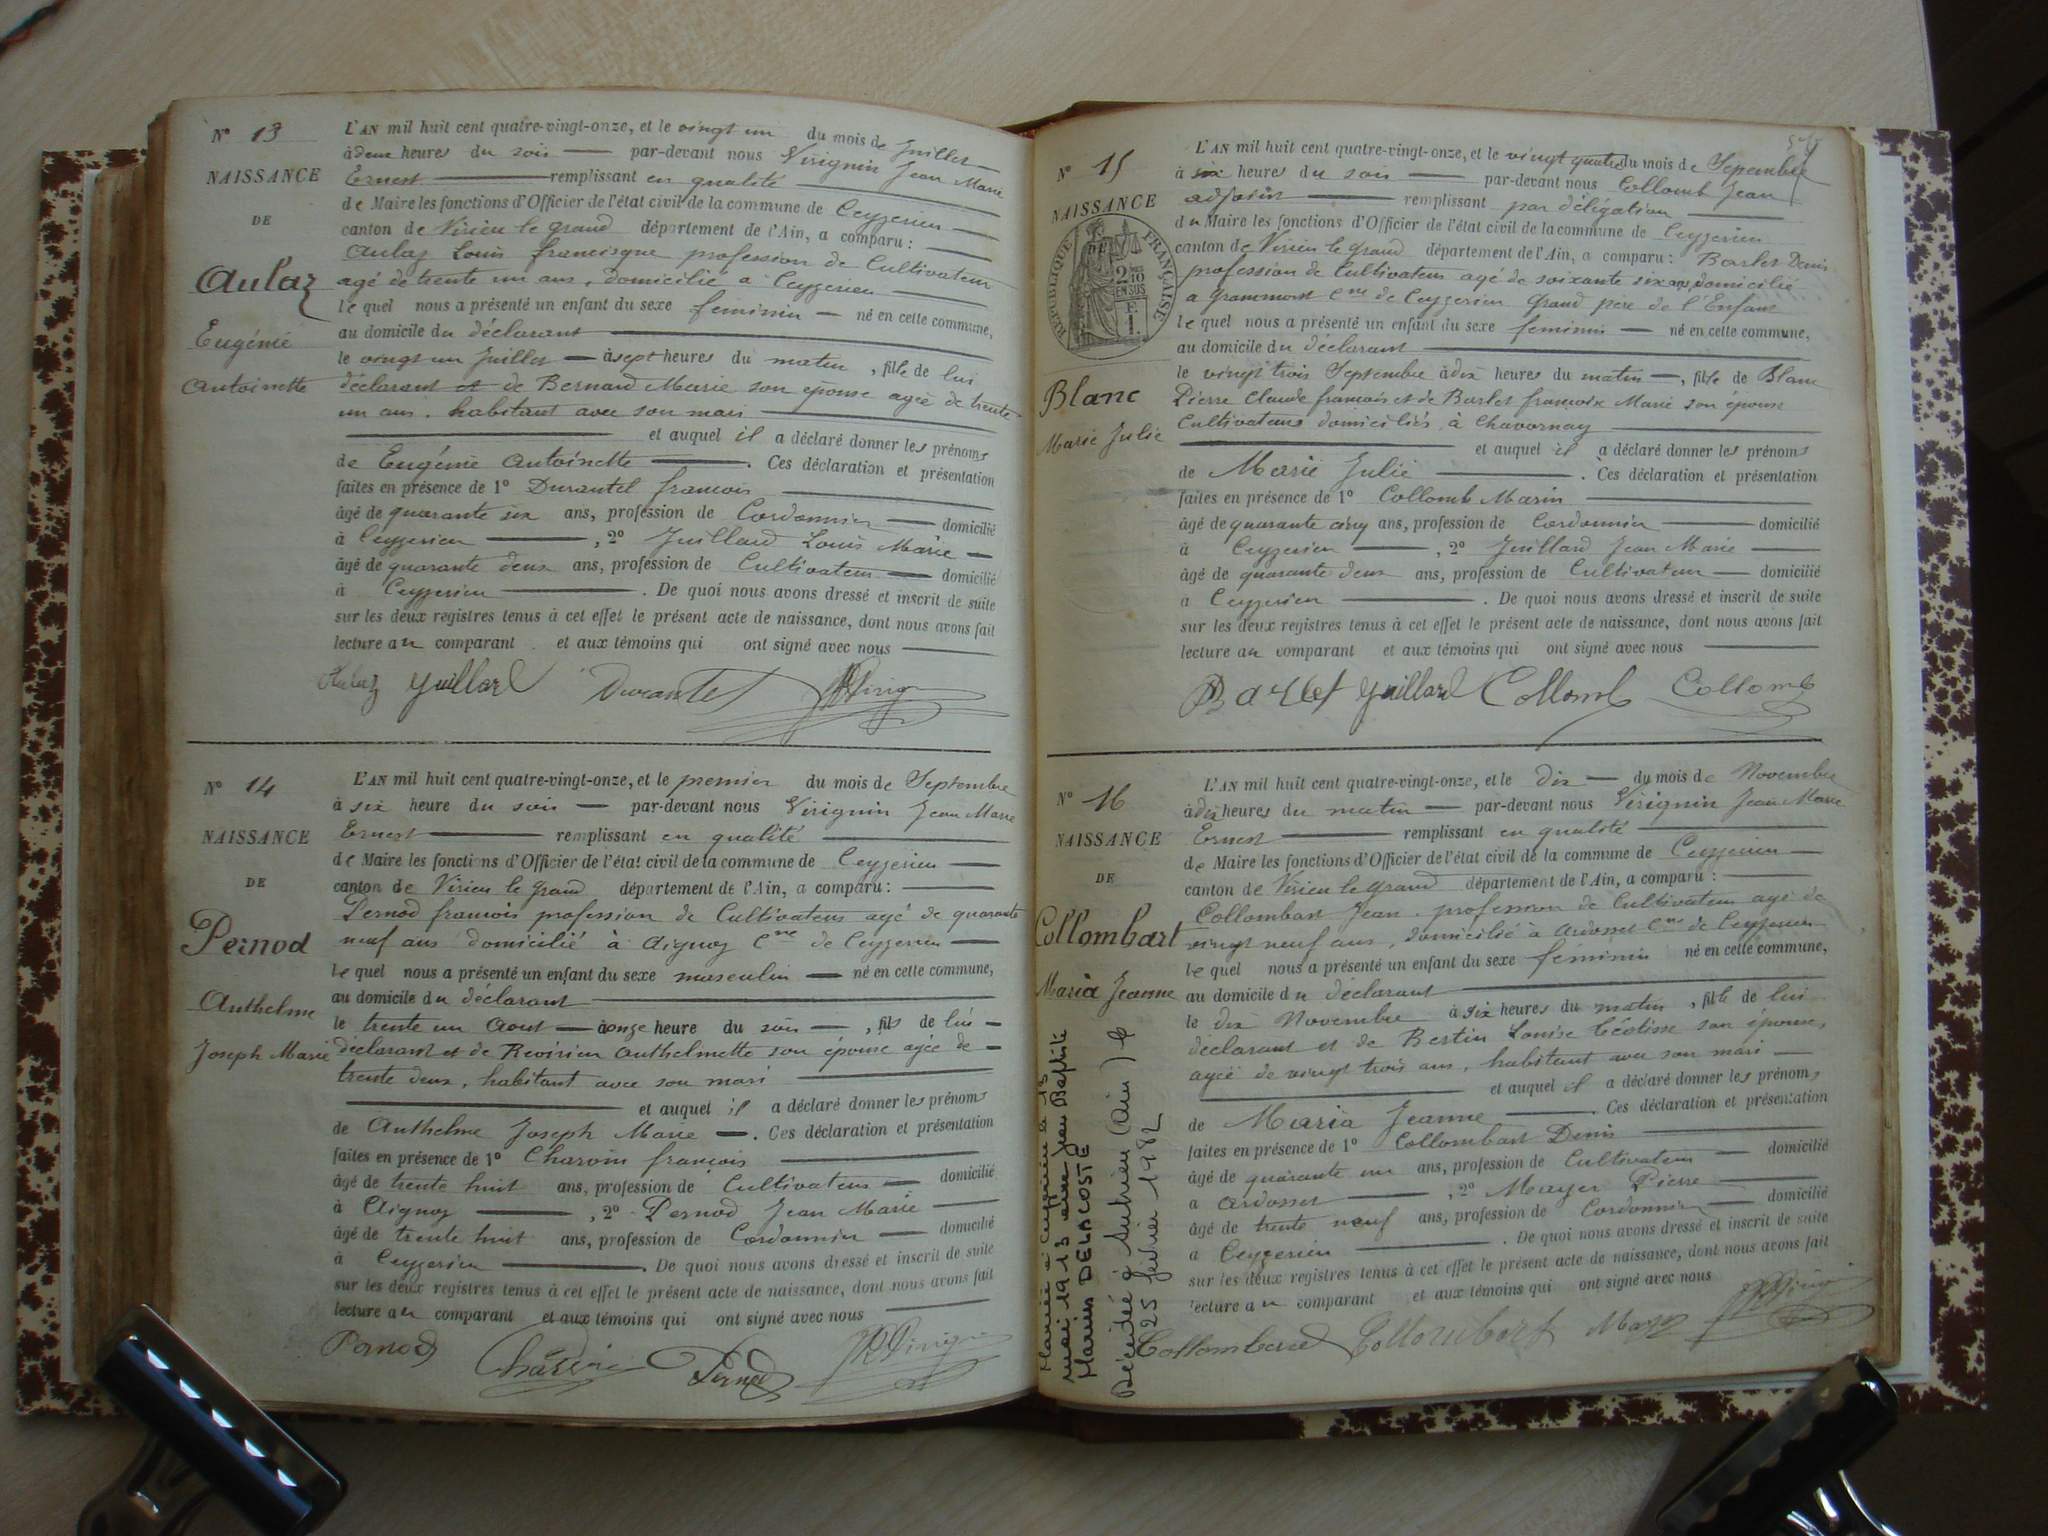 N° 13
NAISSANCE
DE
Aulaz
Eugénie
Antoinette
L'AN mil huit cent quatre-vingt-onze, et le vingt un du mois de Juillet
à deux heures du soir par-devant nous Virignin Jean Marie
Ernest remplissant en qualité
de Maire les fonctions d'Officier de l'état civil de la commune de Ceyzerieu
canton de Virieu le grand département de l'Ain, a comparu :
Aulaz Louis francisque profession de Cultivateur
agé de trente un ans, domicilié à Ceyzerieu
le quel nous a présenté un enfant du sexe feminin né en cette commune,
au domicile du déclarant
le vingt un Juillet à sept heures du matin, fille de lui
déclarant et de Bernard Marie son épouse agée de trente
un ans, habitant avec son mari
et auquel il a déclaré donner les prénoms
de Eugénie Antoinette. Ces déclaration et présentation
faites en présence de 1° Durantel francois
âgé de quarante six ans, profession de Cordonnier domicilié
à Ceyzerieu, 2° Juillard Louis Marie
âgé de quarante deux ans, profession de Cultivateur domicilié
à Ceyzerieu. De quoi nous avons dressé et inscrit de suite
sur les deux registres tenus à cet effet le présent acte de naissance, dont nous avons fait
lecture au comparant et aux témoins qui ont signé avec nous
Aulaz Juillard Durantel
N° 14
NAISSANCE
DE
Pernod
Anthelme
Joseph Marie
L'AN mil huit cent quatre-vingt-onze, et le premier du mois de Septembre
à six heure du soir par-devant nous Virignin Jean Marie
Ernest remplissant en qualité
de Maire les fonctions d'Officier de l'état civil de la commune de Ceyzerieu
canton de Virieu le grand département de l'Ain, a comparu :
Pernod francois profession de Cultivateur agé de quarante
neuf ans domicilié à Aignoz Cne de Ceyzerieu
le quel nous a présenté un enfant du sexe masculin né en cette commune,
au domicile du déclarant
le trente un Aout à onze heure du soir, fils de lui
déclarant et de Revirieu Anthelmette son épouse agée de
trente deux, habitant avec son mari
et auquel il a déclaré donner les prénoms
de Anthelme Joseph Marie. Ces déclaration et présentation
faites en présence de 1° Charvin françois
âgé de trente huit ans, profession de Cultivateur domicilié
à Aignoz, 2° Pernod Jean Marie
âgé de trente huit ans, profession de Cordonnier domicilié
à Ceyzerieu. De quoi nous avons dressé et inscrit de suite
sur les deux registres tenus à cet effet le présent acte de naissance, dont nous avons fait
lecture au comparant et aux témoins qui ont signé avec nous
Pernod Charvin Pernod
N° 15
NAISSANCE
DE
RÉPUBLIQUE FRANÇAISE
2/10 EN SUS
Blanc
Marie Julie
L'AN mil huit cent quatre-vingt-onze, et le vingt quatre du mois de Sepembre
à six heures du soir par-devant nous Collomb Jean
adjoint remplissant par délégation
du Maire les fonctions d'Officier de l'état civil de la commune de Ceyzerieu
canton de Virieu le grand département de l'Ain, a comparu : Barlet Denis
profession de Cultivateur agé de soixante six ans domicilié
à Grammont Cne de Ceyzerieu Grand père de l'Enfant
le quel nous a présenté un enfant du sexe feminin né en cette commune,
au domicile du déclarant
le vingt trois Septembre à dix heures du matin, fille de Blanc
Pierre Claude francois et de Barlet francoise Marie son épouse
Cultivateurs domiciliés à Chavornay
et auquel il a déclaré donner les prénoms
de Marie Julie. Ces déclaration et présentation
faites en présence de 1° Collomb Marin
âgé de quarante cinq ans, profession de Cordonnier domicilié
à Ceyzerieu, 2° Juillard Jean Marie
âgé de quarante deux ans, profession de Cultivateur domicilié
à Ceyzerieu. De quoi nous avons dressé et inscrit de suite
sur les deux registres tenus à cet effet le présent acte de naissance, dont nous avons fait
lecture au comparant et aux témoins qui ont signé avec nous
Barlet Juillard Collomb Collomb
N° 16
NAISSANCE
DE
Collombart
Maria Jeanne
L'AN mil huit cent quatre-vingt-onze, et le dix du mois de Novembre
à dix heures du matin par-devant nous Virignin Jean Marie
Ernest remplissant en qualité
de Maire les fonctions d'Officier de l'état civil de la commune de Ceyzerieu
canton de Virieu le grand département de l'Ain, a comparu :
Collombart Jean, profession de Cultivateur agé de
vingt neuf ans, domicilié à Ardosset Cne de Ceyzerieu
le quel nous a présenté un enfant du sexe féminin né en cette commune,
au domicile du déclarant
le dix Novembre à six heures du matin, fille de lui
déclarant et de Bertin Louise Céolisse son épouse,
agée de vingt trois ans, habitant avec son mari
et auquel il a déclaré donner les prénoms
de Maria Jeanne. Ces déclaration et présentation
faites en présence de 1° Collombart Denis
âgé de quarante un ans, profession de Cultivateur domicilié
à Ardosset, 2° Mayer Pierre
âgé de trente neuf ans, profession de Cordonnier domicilié
à Ceyzerieu. De quoi nous avons dressé et inscrit de suite
sur les deux registres tenus à cet effet le présent acte de naissance, dont nous avons fait
lecture au comparant et aux témoins qui ont signé avec nous
Collombard Collombart
Mariée à Ceyzérieu le 13
mai 1913 avec Jean Baptiste
Marius DELACOSTE
Décédée à (Ain) le
25 février 1982